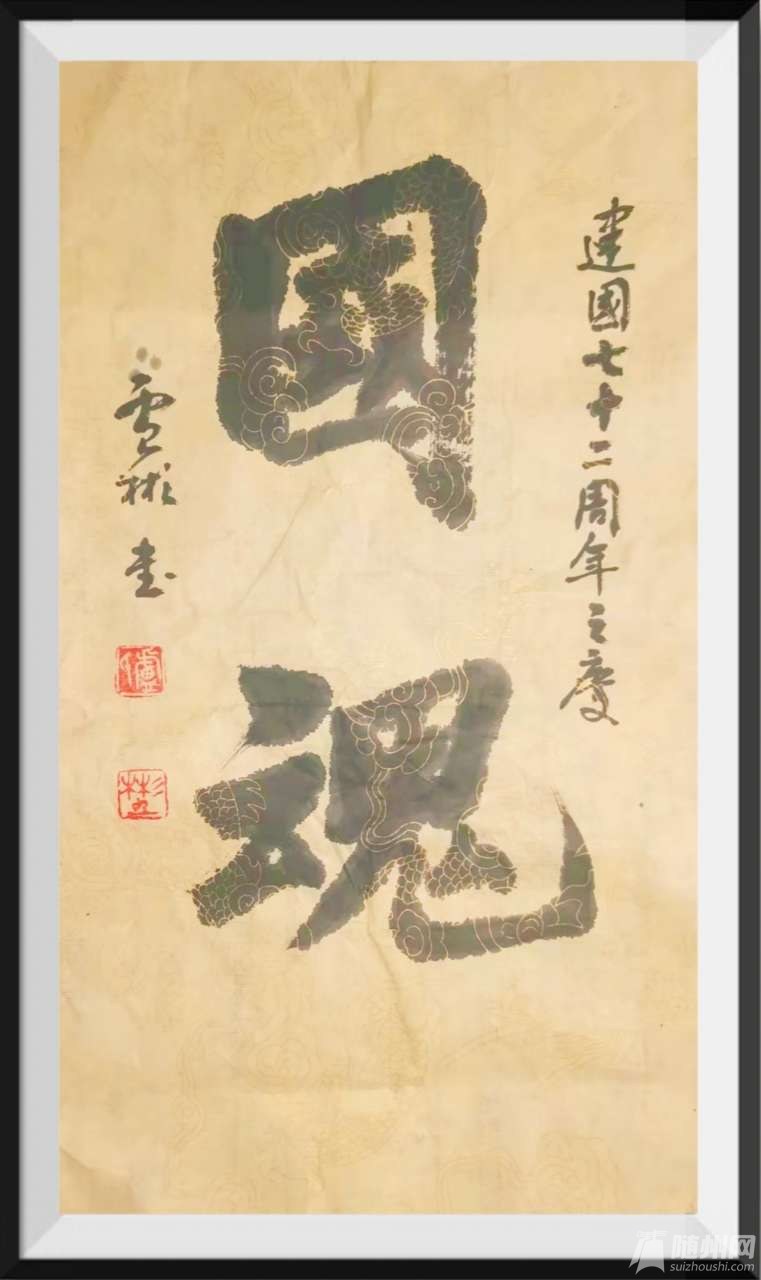 建國七十二周年之慶
國魂
雪彬書
随州网
suizhoushi.com